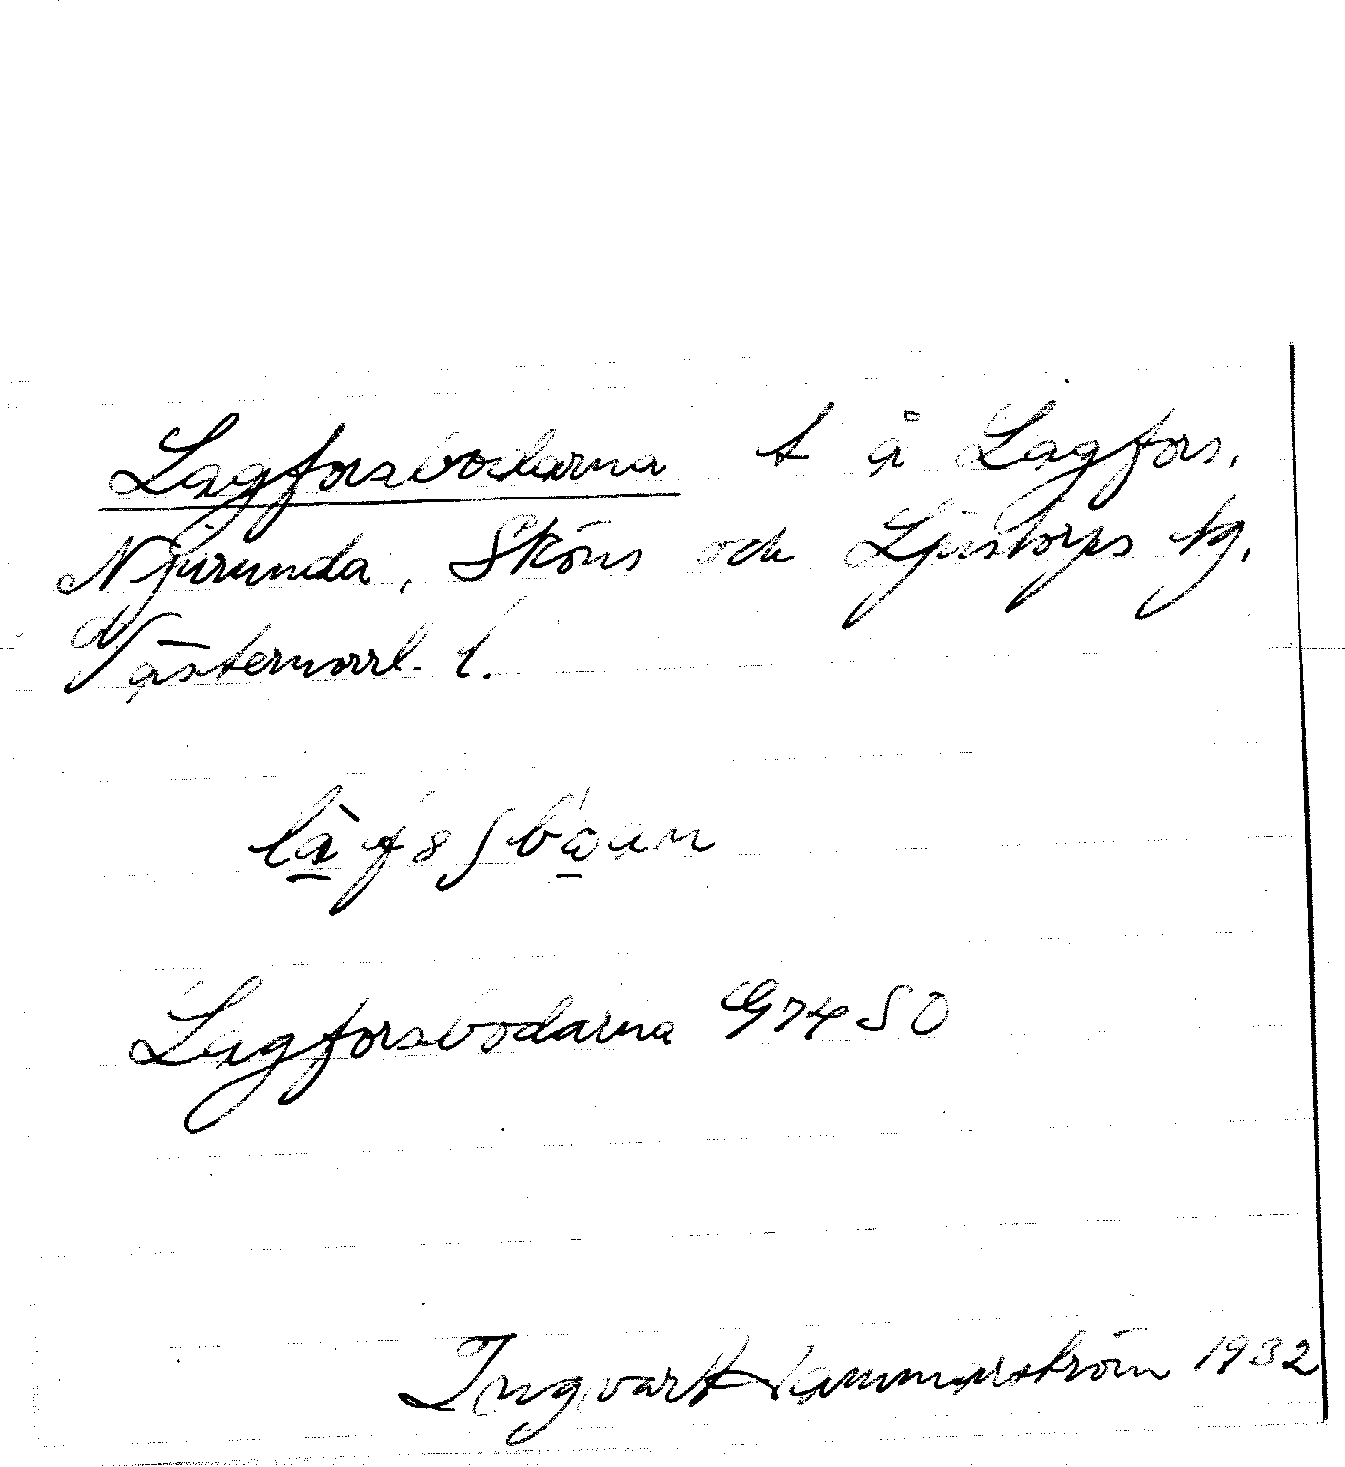 Lagforsbodarna t å Lagfors,
Njurunda, Sköns och Ljustorps tg,
Västernorrl. l.
Lagforsbodarna G74SO
Ingvar Hammarström 1932